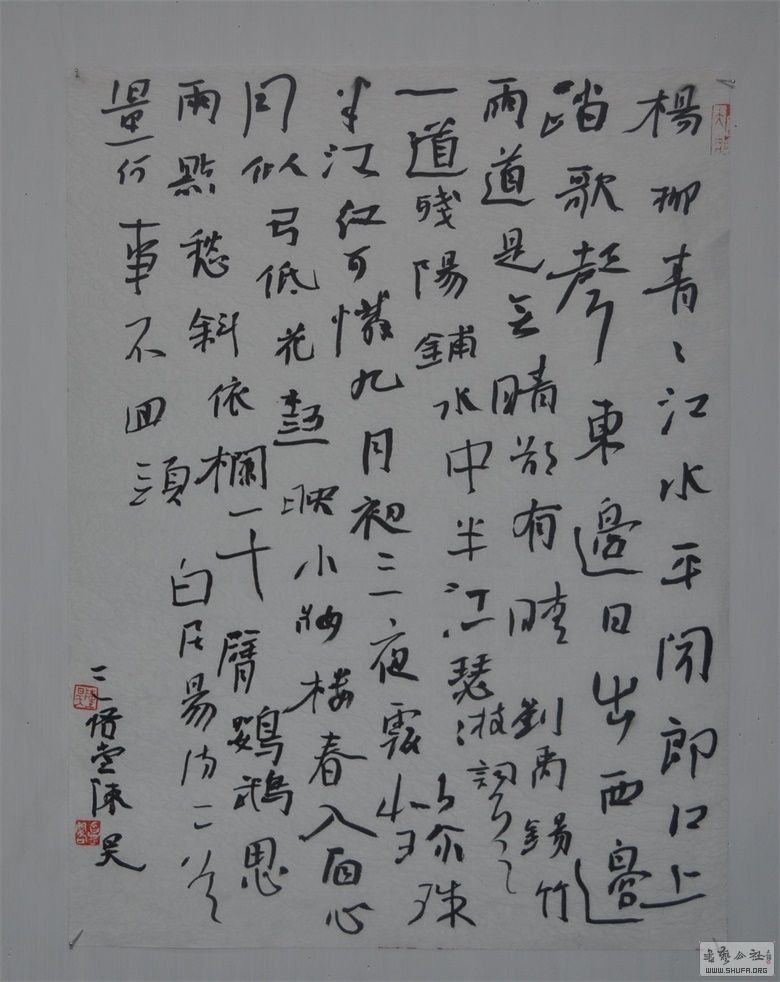 楊柳青〻江水平闻郎江上
踏歌聲東邊日出西邊
雨道是无晴卻有晴 劉禹錫竹
枝詞
一道殘陽鋪水中半江瑟〻
半江红可憐九月初三夜露似珍珠
月似弓低花樹映小妝楼春入眉心
兩點愁斜依欄干臂鸚鵡思
量何事不回頭 白居易诗二首
悟堂陳昊
WWW.SHUFA.ORG